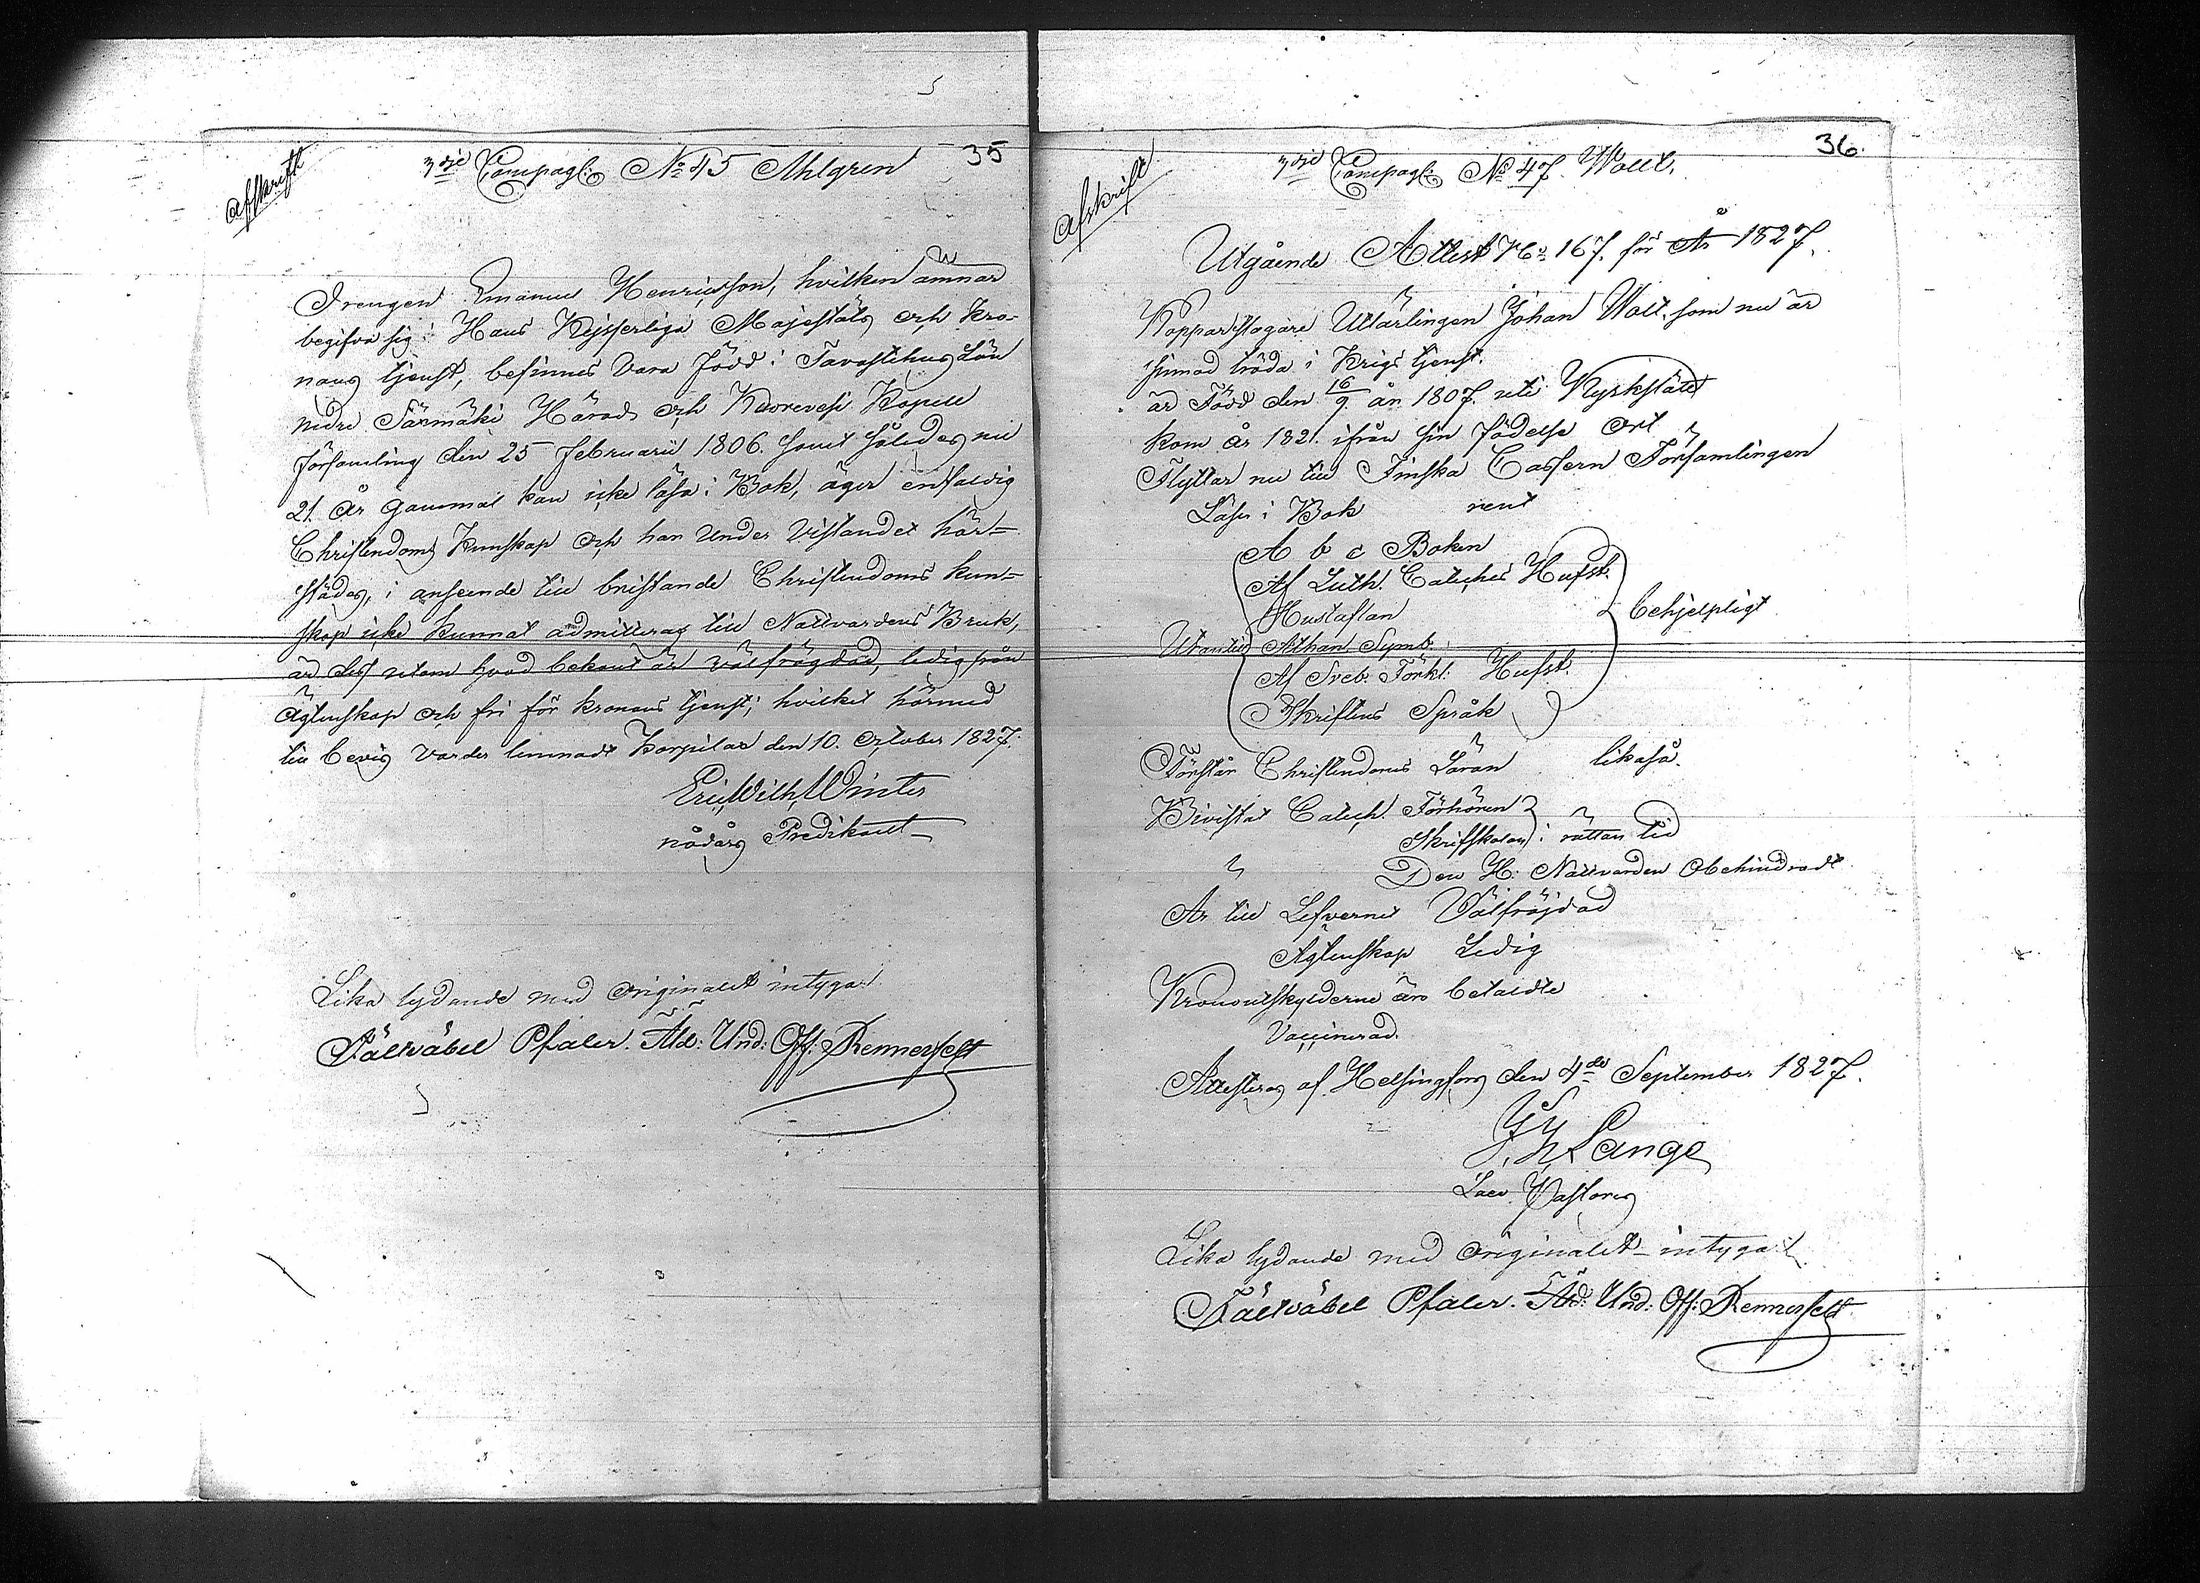 35
Afskrift
3dje Compagt: No 45 Ahlgren
Drengen Emanuel Henricsson, hvilken ämnar
begifva sig i Hans Kejsserliga Majestäts och Kro-
nans tjenst, befinnes vara född i Tavastehus Län
nedre Särmäki Härad och Kuorevesi Kapell
församling den 25 Februarii 1806. samt således nu
21. År gammal kan icke läsa i Bok, äger enfaldig
Christendoms Kunskap och har under vistandet här-
städes, i anseende till bristande Christendoms kun-
skap icke kunnat admitteras till Nattvardens Bruk,
är dess utom hvad bekant är välfrägdad, ledig från
Ägtenskap och fri för kronans tjenst; hvilket härmed
till bevis varder lemnadt Korpilax den 10. October 1827.
Eric Wilh. Winter
nådårs Predikant
Lika lydande med originalet intygar
Fältväbel Pfaler. Äld: Und: Off: Rennerfelt
36.
Afskrift
3dje Compagt: No 47. Wollt.
Utgående Attest No 167. för År 1827.
Kopparslagare Utlärlingen Johan Wolt. som nu är
sinnad träda i Krigs tjenst.
är Född den 16/9. år 1807. uti Nyskjstätt
kom år 182. ifrån sin födelse Ort
Flyttar nu till Finska Cassern Församlingen
Läser i Bok rent
A b c Boken
Af Luth. Cateches Hufst.
Hustaflan
Utantill Athan. Symb. behjelpligt
Af Sveb: Förkl: Hufst.
Skriftens Språk
Förstår Christendoms Läran likaså.
Bivistat Catech. Förhören
Skriftskolan i rättan tid
" Den H: Nattvarden Obehindradt
Är till Lefvernet Välfräjdad
Ägtenskap Ledig
Kronoutskylderne äro betaldte
Vaccinerad.
Attesteras af Helsingfors den 4de September 1827.
J. H. Lange
Lika lydande med originalet intygar
Fältväbel Pfaler. Äld: Und: Off: Rennerfelt